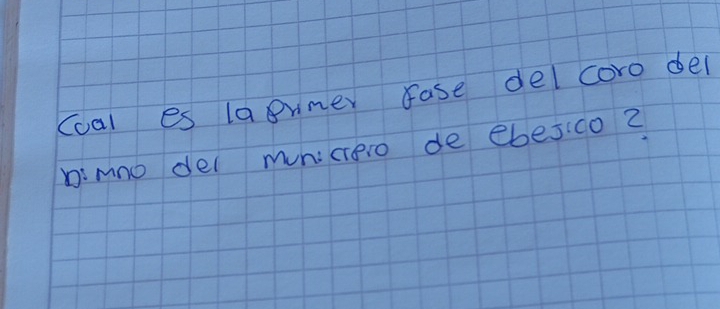 Cual es la primer fase del coro del
himno del municipio de ebejico?